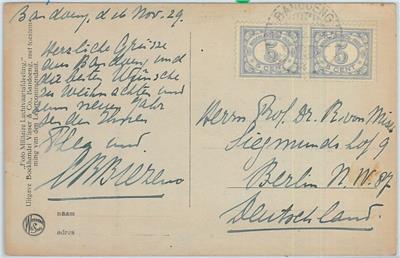 Bandoeng, d 26 Nov. 29.
Herzliche Grüsse
aus Bandoeng und
die besten Wünsche
zu Weihnachten und
zum neuen Jahr
bei den Ihren
und
"Foto Militaire Luchtvaartafdeeling."
Uitgave Boekhandel Visser & Co., Bandoeng, met toestemming
van den Legercommandant.
naam
adres
BANDOENG
5 5
CENT CENT
Herrn Prof. Dr. R. von Mises
Siegmundshof 9
Berlin N.W. 87.
Deutschland.